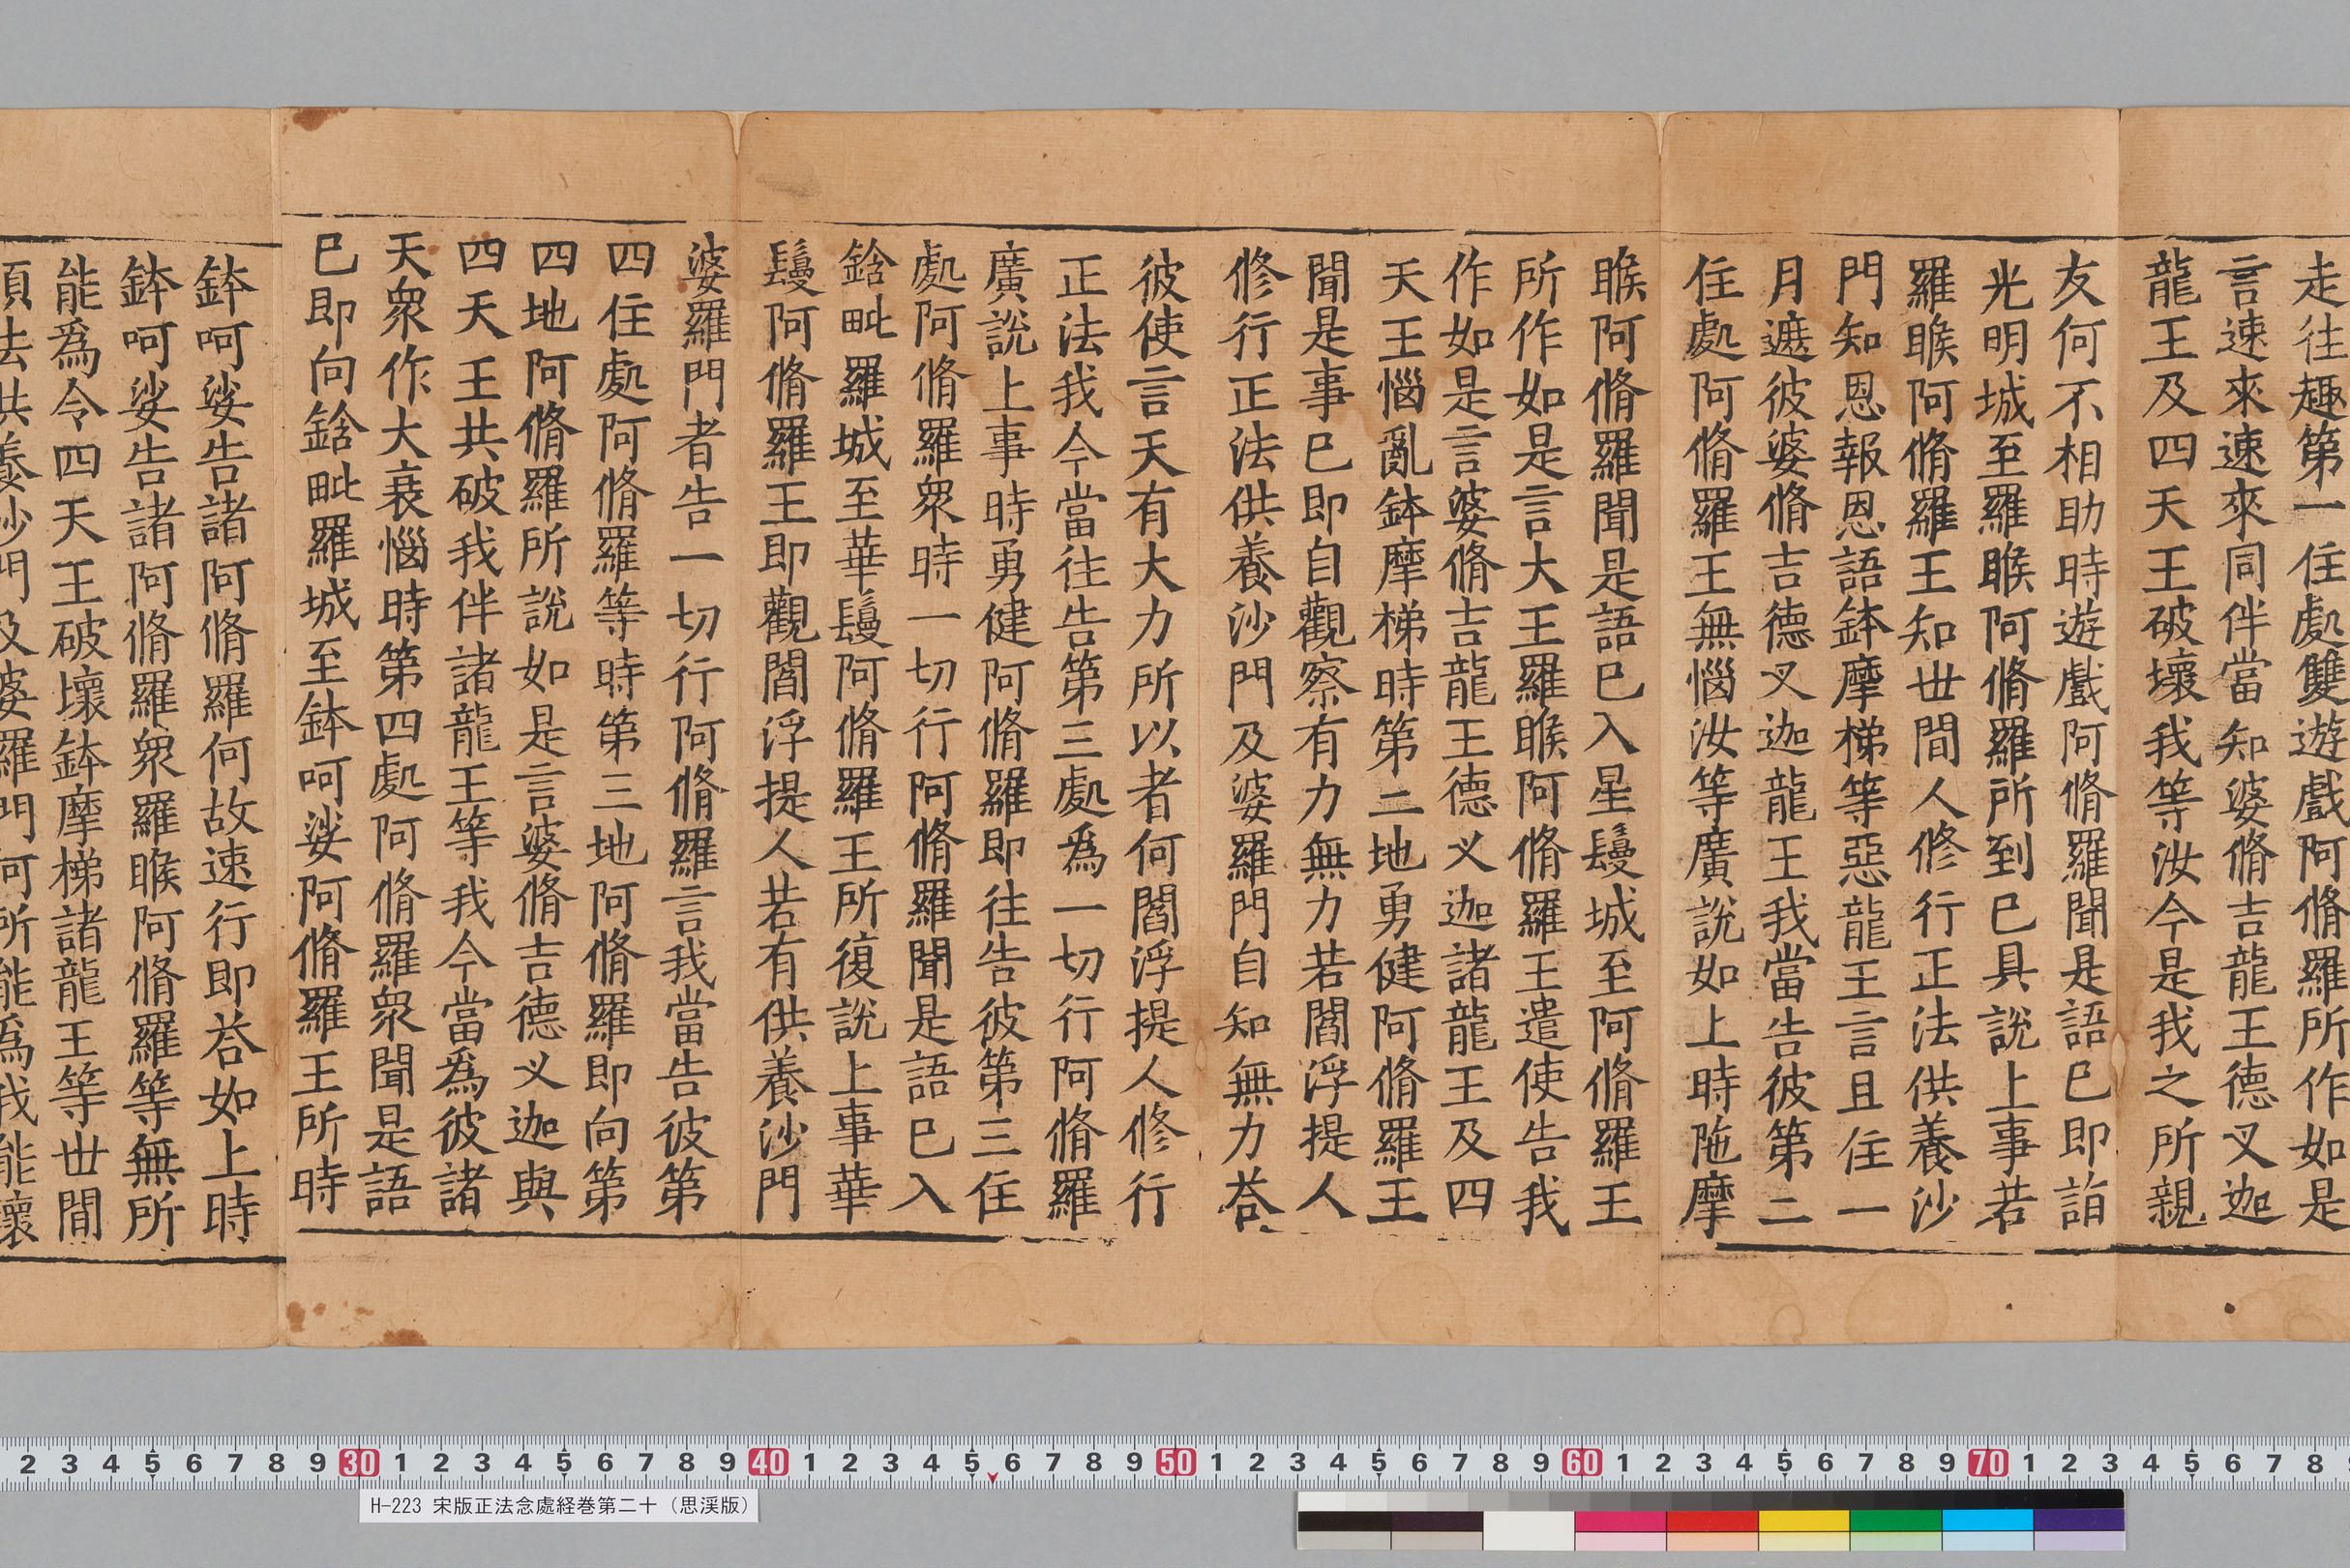 走往趣第一住處雙遊戲阿脩羅所作如是
言速來速來同伴當知婆脩吉龍王德叉迦
龍王及四天王破壞我等汝今是我之所親
友何不相助時遊戲阿脩羅聞是語已即詣
光明城至羅睺阿脩羅所到已具說上事若
羅睺阿脩羅王知世間人修行正法供養沙
門知恩報恩語鉢摩梯等惡龍王言且住一
月遮彼婆脩吉德叉迦龍王我當告彼第二
住處阿脩羅王無惱汝等廣說如上時陁摩
睺阿脩羅聞是語已入星鬘城至阿脩羅王
所作如是言大王羅睺阿脩羅王遣使告我
作如是言婆脩吉龍王德叉迦諸龍王及四
天王惱亂鉢摩梯時第二地勇健阿脩羅王
聞是事已即自觀察有力無力若閻浮提人
修行正法供養沙門及婆羅門自知無力荅
彼使言天有大力所以者何閻浮提人修行
正法我今當往告第三處爲一切行阿脩羅
廣說上事時勇健阿脩羅即往告彼第三住
處阿脩羅衆時一切行阿脩羅聞是語已入
鋡毗羅城至華鬘阿脩羅王所復說上事華
鬘阿脩羅王即觀閻浮提人若有供養沙門
婆羅門者告一切行阿脩羅言我當告彼第
四住處阿脩羅等時第三地阿脩羅即向第
四地阿脩羅所說如是言婆脩吉德叉迦與
四天王共破我伴諸龍王等我今當爲彼諸
天衆作大衰惱時第四處阿脩羅衆聞是語
已即向鋡毗羅城至鉢呵娑阿脩羅王所時
鉢呵娑告諸阿脩羅何故速行即荅如上時
鉢呵娑告諸阿脩羅衆羅睺阿脩羅等無所
能爲令四天王破壞鉢摩梯諸龍王等世間
須法供養沙門及婆羅門何所能爲我能壞
2 3 4 5 6 7 8 9 30 1 2 3 4 5 6 7 8 9 40 1 2 3 4 5 6 7 8 9 50 1 2 3 4 5 6 7 8 9 60 1 2 3 4 5 6 7 8 9 70 1 2 3 4 5 6 7 8
H-223 宋版正法念處経巻第二十（思渓版）